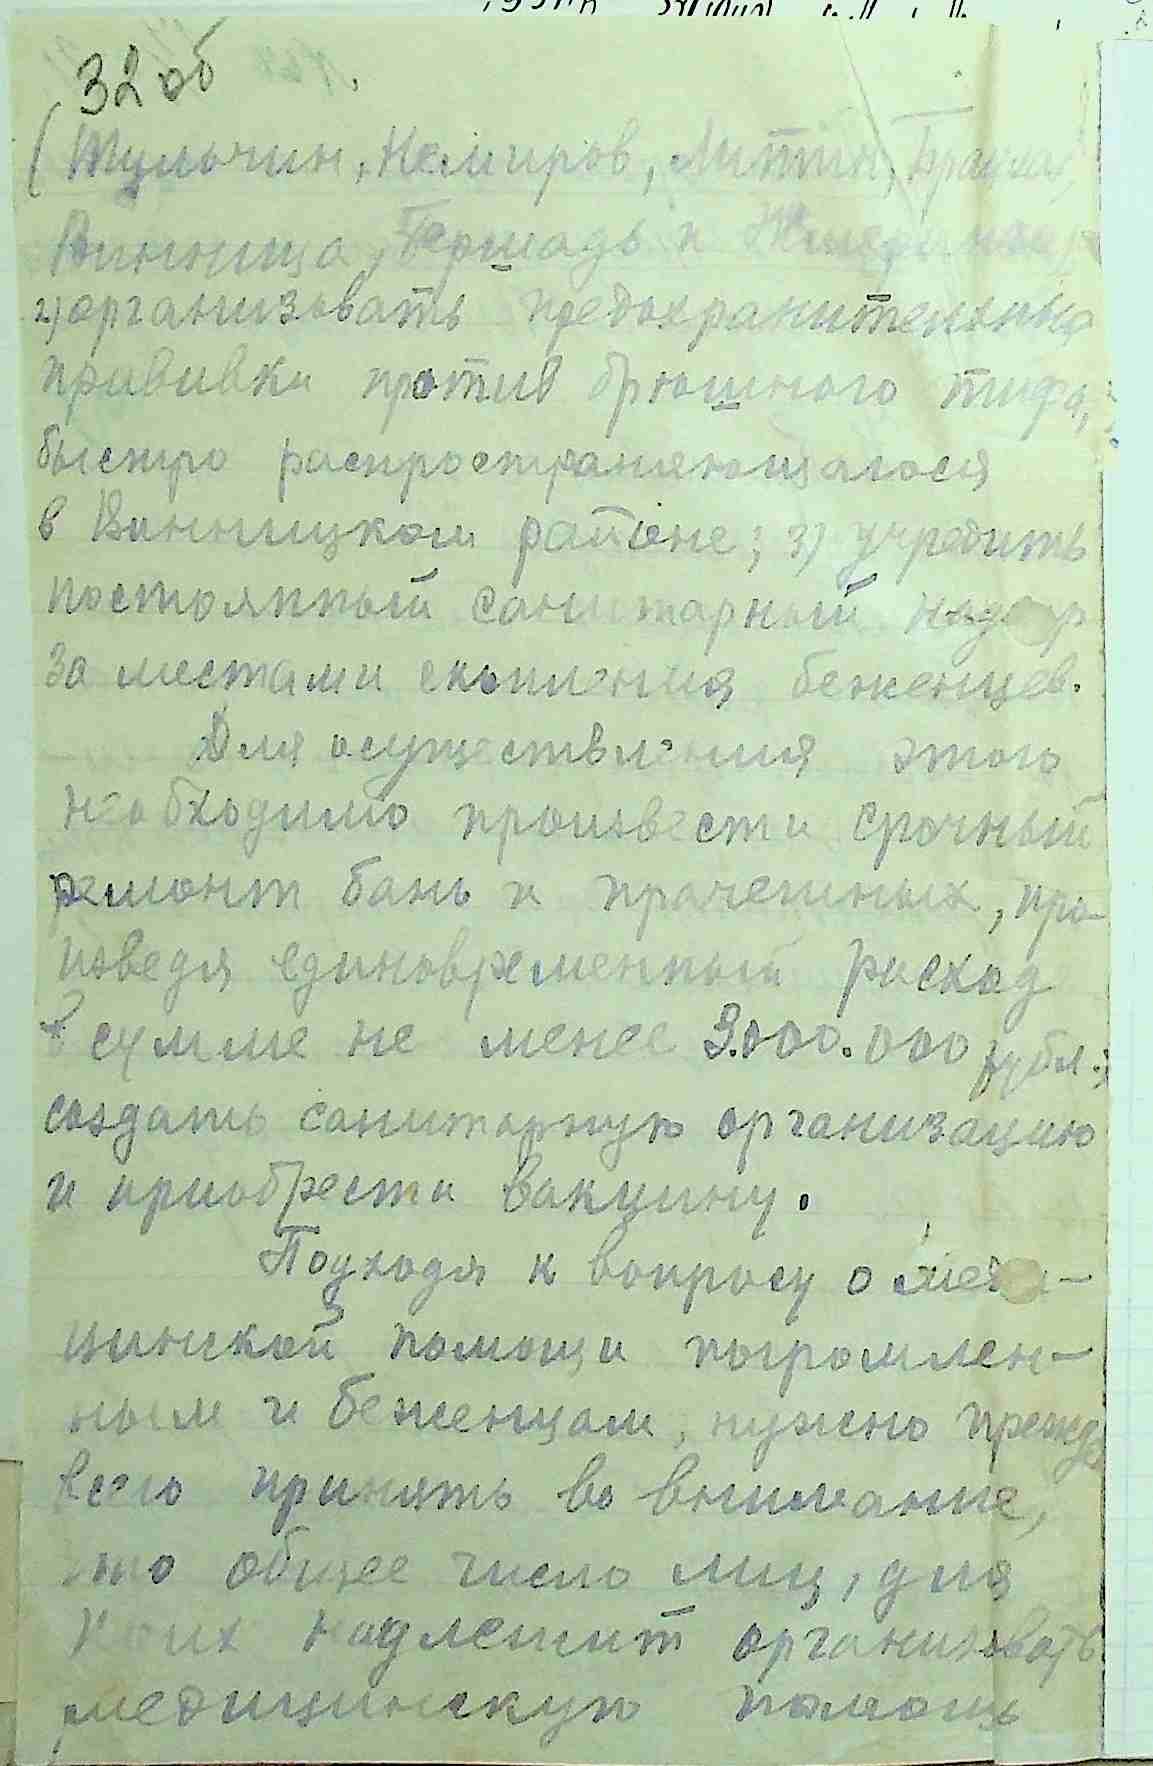 32 об
(Тульчин, Немиров, Литин, Брацлав,
Винница, Бершадь и Жмеринка)
2) организовать предохранительные
прививки против брюшного тифа,
быстро распространяющагося
в Винницком районе; 3) учредить
постоянный санитарный надзор
за местами скопления беженцев.
Для осуществления этого
необходимо произвести срочный
ремонт бань и прачешных, про-
изведя единовременный расход
в сумме не менее 3.000.000 рубл.;
создать санитарную организацию
и приобрести вакцину.
Подходя к вопросу о меди-
цинской помощи погромлен-
ным и беженцам, нужно прежде
всего принять во внимание,
что общее число лиц, для
коих надлежит организовать
медицинскую помощь